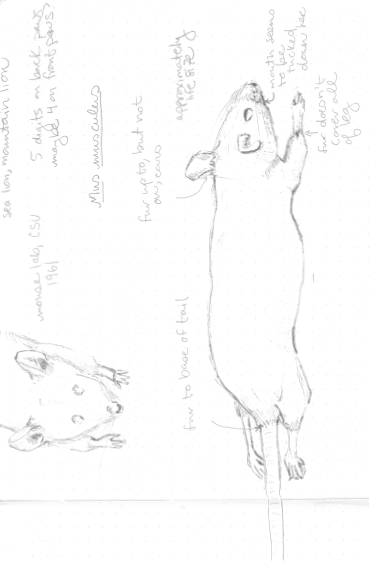 sea lion, mountain lion
5 digits on back paws,
maybe 4 on front paws?
mouse lab, CSU
1961
Mus musculus
fur up to, but not
on, ears
approximately
life size
mouth seems
to be
tucked
down here
fur doesn't
cover all
of leg
fur to base of tail